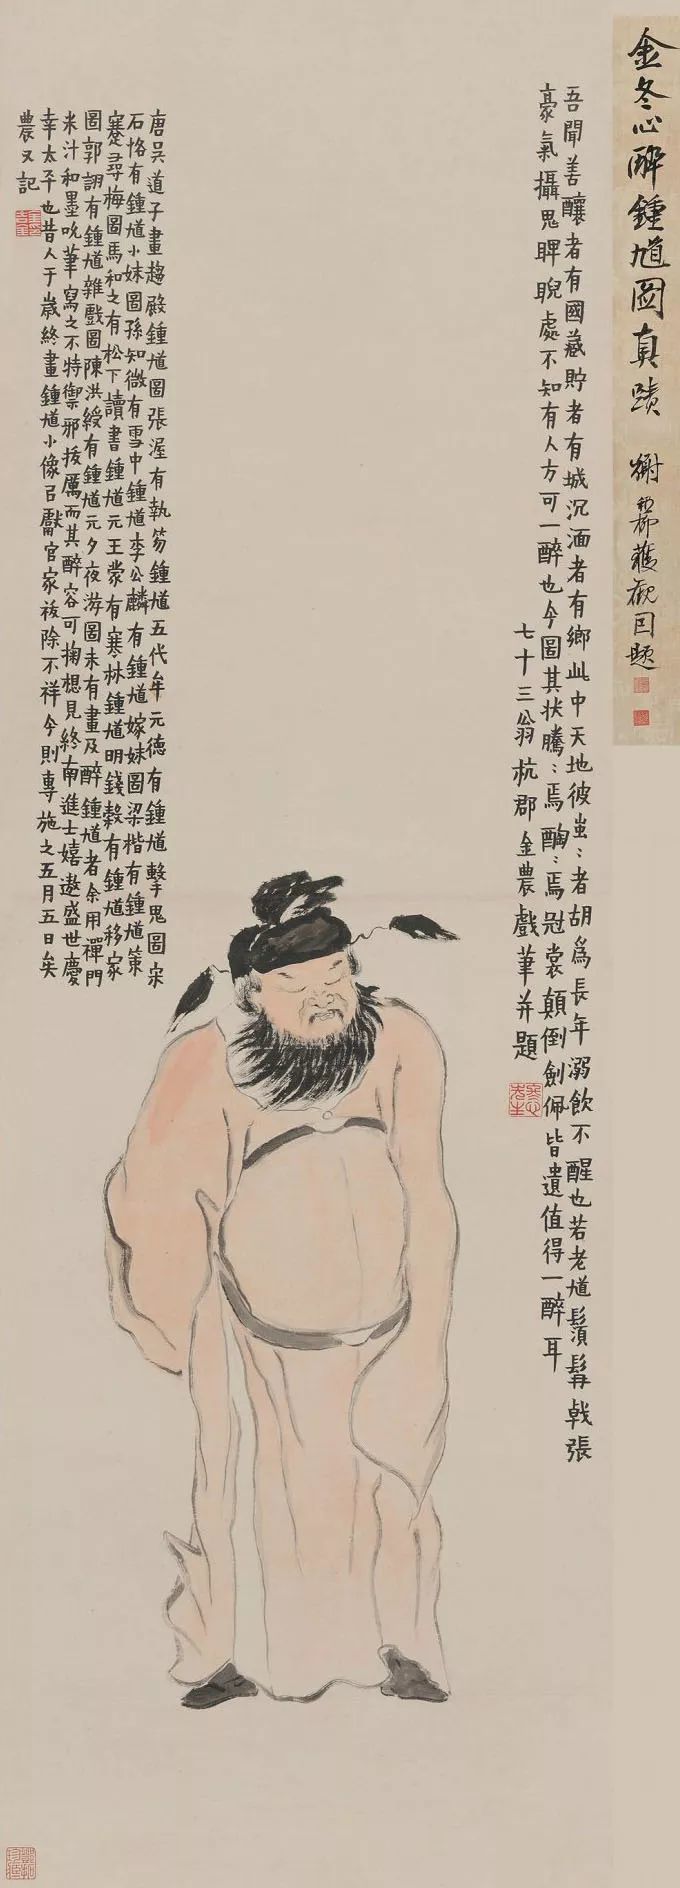 金冬心醉鍾馗圖真蹟
謝稚柳獲觀因題
吾聞善釀者有國藏貯者有城沉湎者有鄉此中天地彼蚩:者胡爲長年溺飲不醒也若老馗鬚髯戟張
豪氣攝鬼睥睨處不知有人方可一醉也今圖其状騰:焉醄:焉冠裳顛倒劍佩皆遺值得一醉耳
七十三翁杭郡金農戲筆并題
唐吳道子畫趨殿鍾馗圖張渥有執笏鍾馗五代牟元德有鍾馗擊鬼圖宋
石恪有鍾馗小妹圖孫知微有雪中鍾馗李公麟有鍾馗嫁妹圖梁楷有鍾馗策
蹇尋梅圖馬和之有松下讀書鍾馗元王蒙有寒林鍾馗明錢穀有鍾馗移家
圖郭詡有鍾馗雜戲圖陳洪綬有鍾馗元夕夜游圖未有畫及醉鍾馗者余用禪門
米汁和墨吮筆寫之不特禦邪拔厲而其醉容可掬想見終南進士嬉遨盛世慶
幸太平也昔人于歲終畫鍾馗小像㠯獻官家祓除不祥今則專施之五月五日矣
農又記